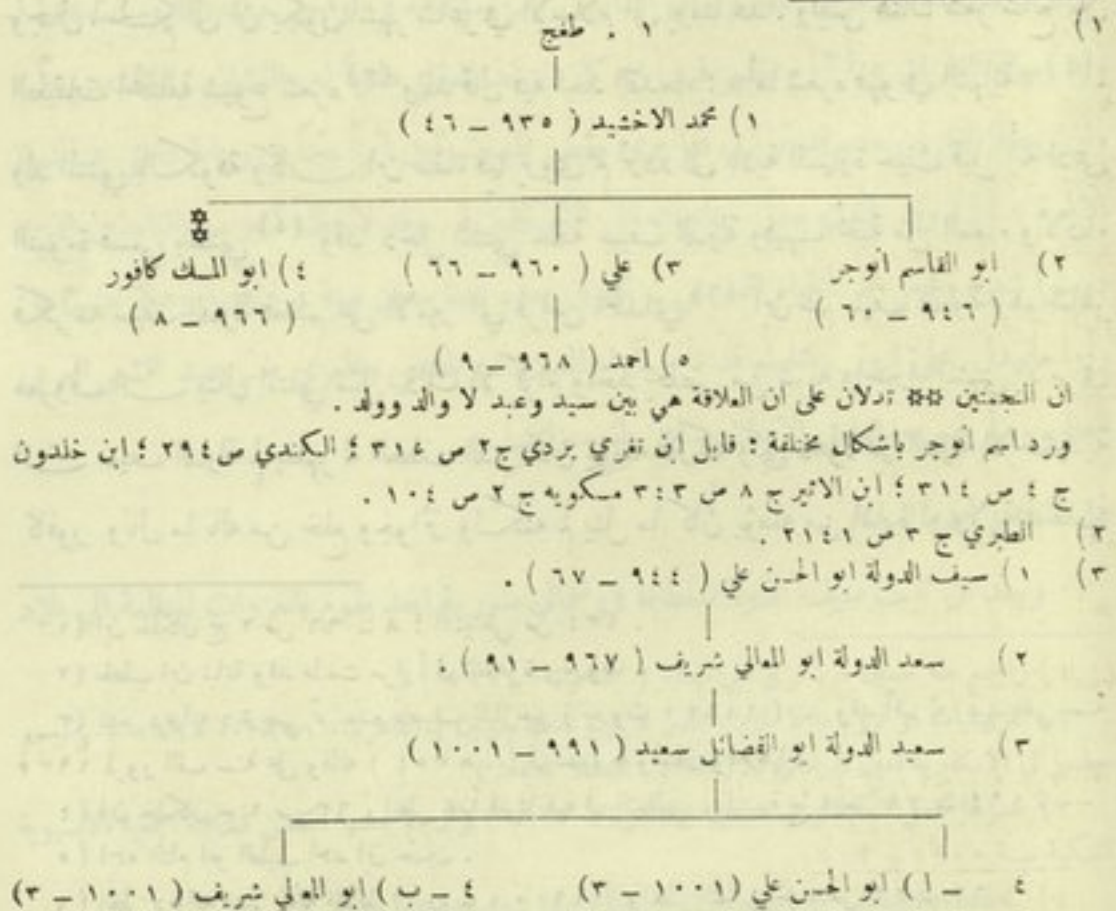 ١) ١ . طغج
١) محمد الاخشيد ( ٩٣٥ – ٤٦ )
٢) ابو القاسم أنوجر ٣) علي ( ٩٦٠ – ٦٦ ) ٤) ابو المسك كافور
( ٩٤٦ – ٦٠ ) ( ٩٦٦ – ٨ )
٥) احمد ( ٩٦٨ – ٩ )
ان النجمتين ** تدلان على ان العلاقة هي بين سيد وعبد لا والد وولد .
ورد اسم أنوجر باشكال مختلفة : قابل ابن تغري بردي ج٢ ص ٣١٤ ؛ الكندي ص ٢٩٤ ؛ ابن خلدون
ج ٤ ص ٣١٤ ؛ ابن الاثير ج ٨ ص ٣٤٣ مسكويه ج ٢ ص ١٠٤ .
٢) الطبري ج ٣ ص ٢١٤١ .
٣) ١) سيف الدولة ابو الحسن علي ( ٩٤٤ – ٦٧ ) .
٢) سعد الدولة ابو المعالي شريف ( ٩٦٧ – ٩١ ) .
٣) سعيد الدولة ابو الفضائل سعيد ( ٩٩١ – ١٠٠١ )
٤ – ا ) ابو الحسن علي (١٠٠١ – ٣) ٤ – ب ) ابو المعالي شريف ( ١٠٠١ – ٣)